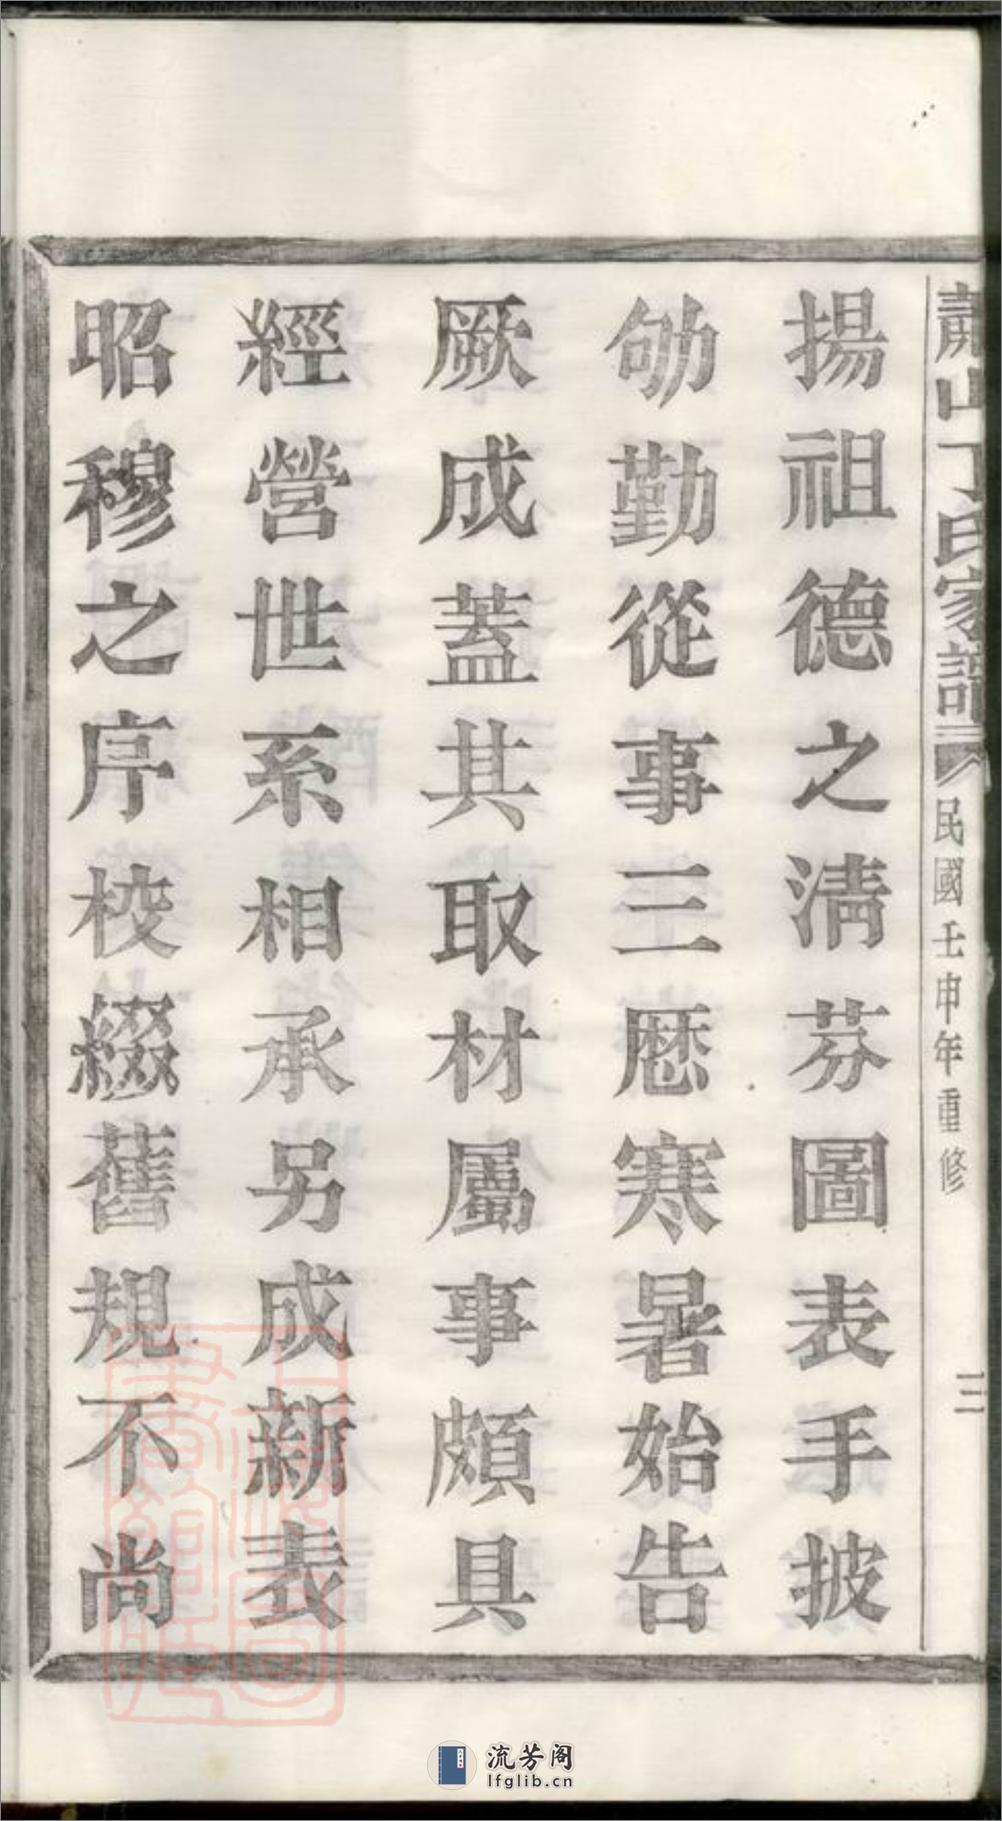 蕭山丁氏家譜
民國壬申年重修
三
揚祖德之清芬圖表手披
劬勤從事三厯寒暑始告
厥成蓋其取材屬事頗具
經營世系相承另成新表
昭穆之序校綴舊規不尚
上海圖書館藏
流芳阁
lfglib.cn